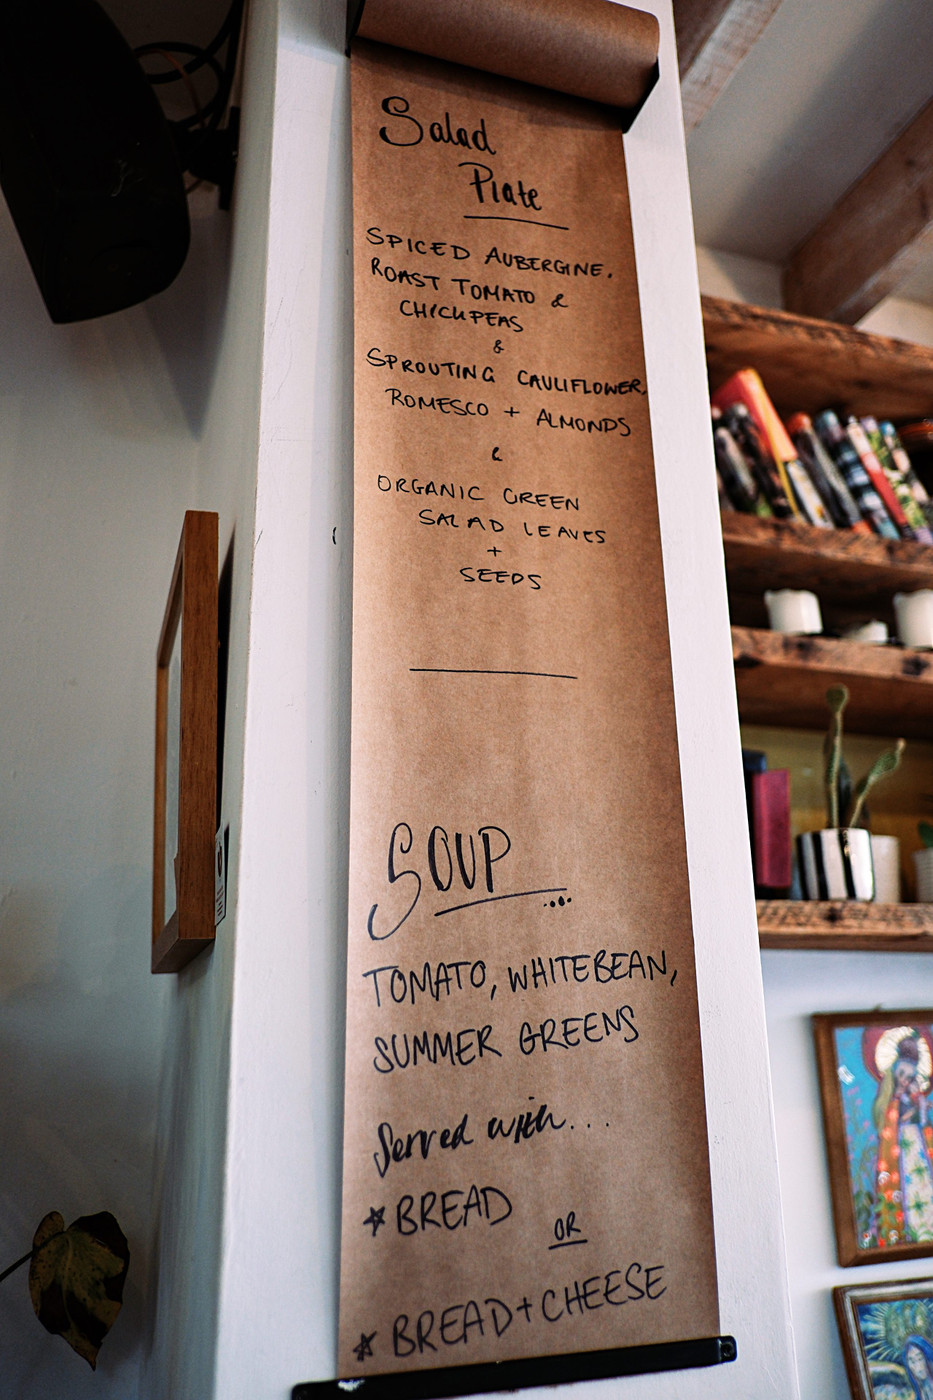 Salad
Plate
SPICED AUBERGINE,
ROAST TOMATO &
CHICKPEAS
&
SPROUTING CAULIFLOWER,
ROMESCO + ALMONDS
&
ORGANIC GREEN
SALAD LEAVES
+
SEEDS
SOUP...
TOMATO, WHITEBEAN,
SUMMER GREENS
Served with...
* BREAD
OR
* BREAD + CHEESE